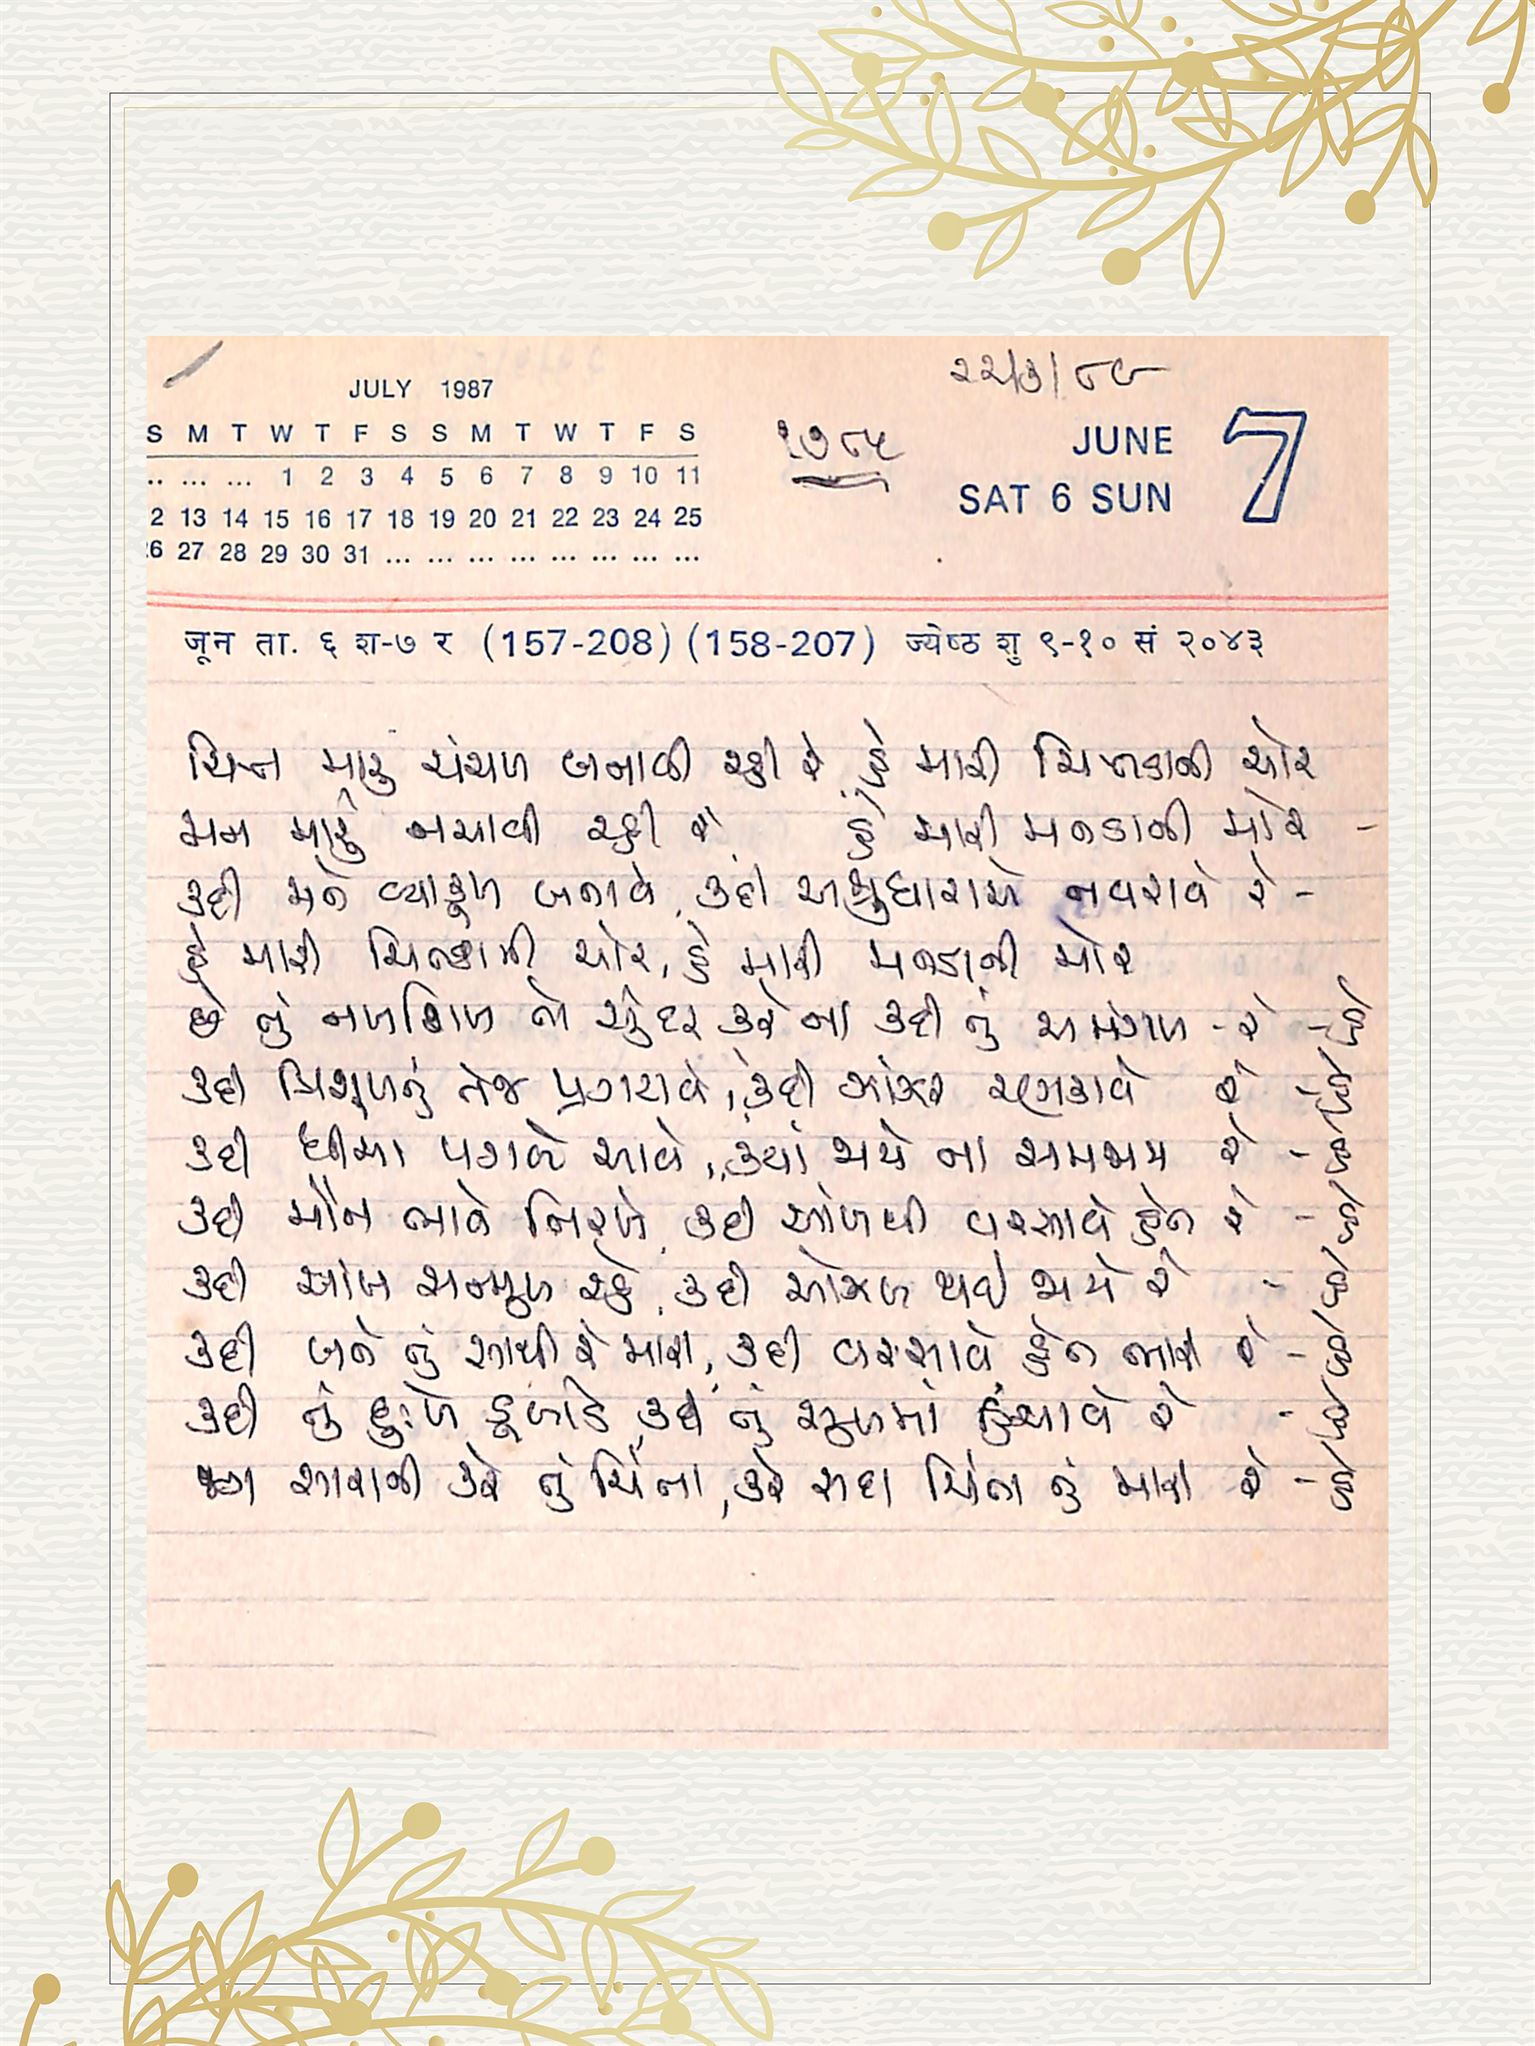 JULY 1987
S M T W T F S S M T W T F S
.. ... ... 1 2 3 4 5 6 7 8 9 10 11
2 13 14 15 16 17 18 19 20 21 22 23 24 25
26 27 28 29 30 31 ... ... ... ... ... ... ... ...
૨૨/૩/૮૯
૧૭૮૫
JUNE
SAT 6 SUN 7
जून ता. ६ श-७ र (157-208) (158-207) ज्येष्ठ शु ९-१० सं २०४३
ચિત્ત મારું ચંચળ બનાવી રહી રે હે મારી ચિત્તડાની ચોર
મન મારું નચાવી રહી રે હે મારી મનડાની મોર -
કદી મને વ્યાકૂળ બનાવે, કદી અશ્રુધારાએ નવરાવે રે -
હે મારી ચિત્તડાની ચોર, હે મારી મનડાની મોર
છે તું નખશિખ તો સુંદર કરે ના કદી તું અમંગળ - રે - હે
કદી ત્રિશૂળનું તેજ પ્રગટાવે, કદી ઝાંઝર રણકાવે રે - હે
કદી ધીમા પગલે આવે, ક્યાં જાયે ના સમજાય રે - હે
કદી મૌન ભાવે નિરખે, કદી આંખથી વરસાવે હેત રે - હે
કદી આંખ સન્મુખ રહે, કદી ઓઝલ થઈ જાયે રે - હે
કદી બને તું સાથી રે મારા, કદી વરસાવે હેત ભારી રે - હે
કદી તું દુઃખે ડૂબાડે, કદી તું સુખમાં હિંચાવે રે - હે
જગ સારાની કરે તું ચિંતા, કરે સદા ચિંતા તું મારી રે - હે